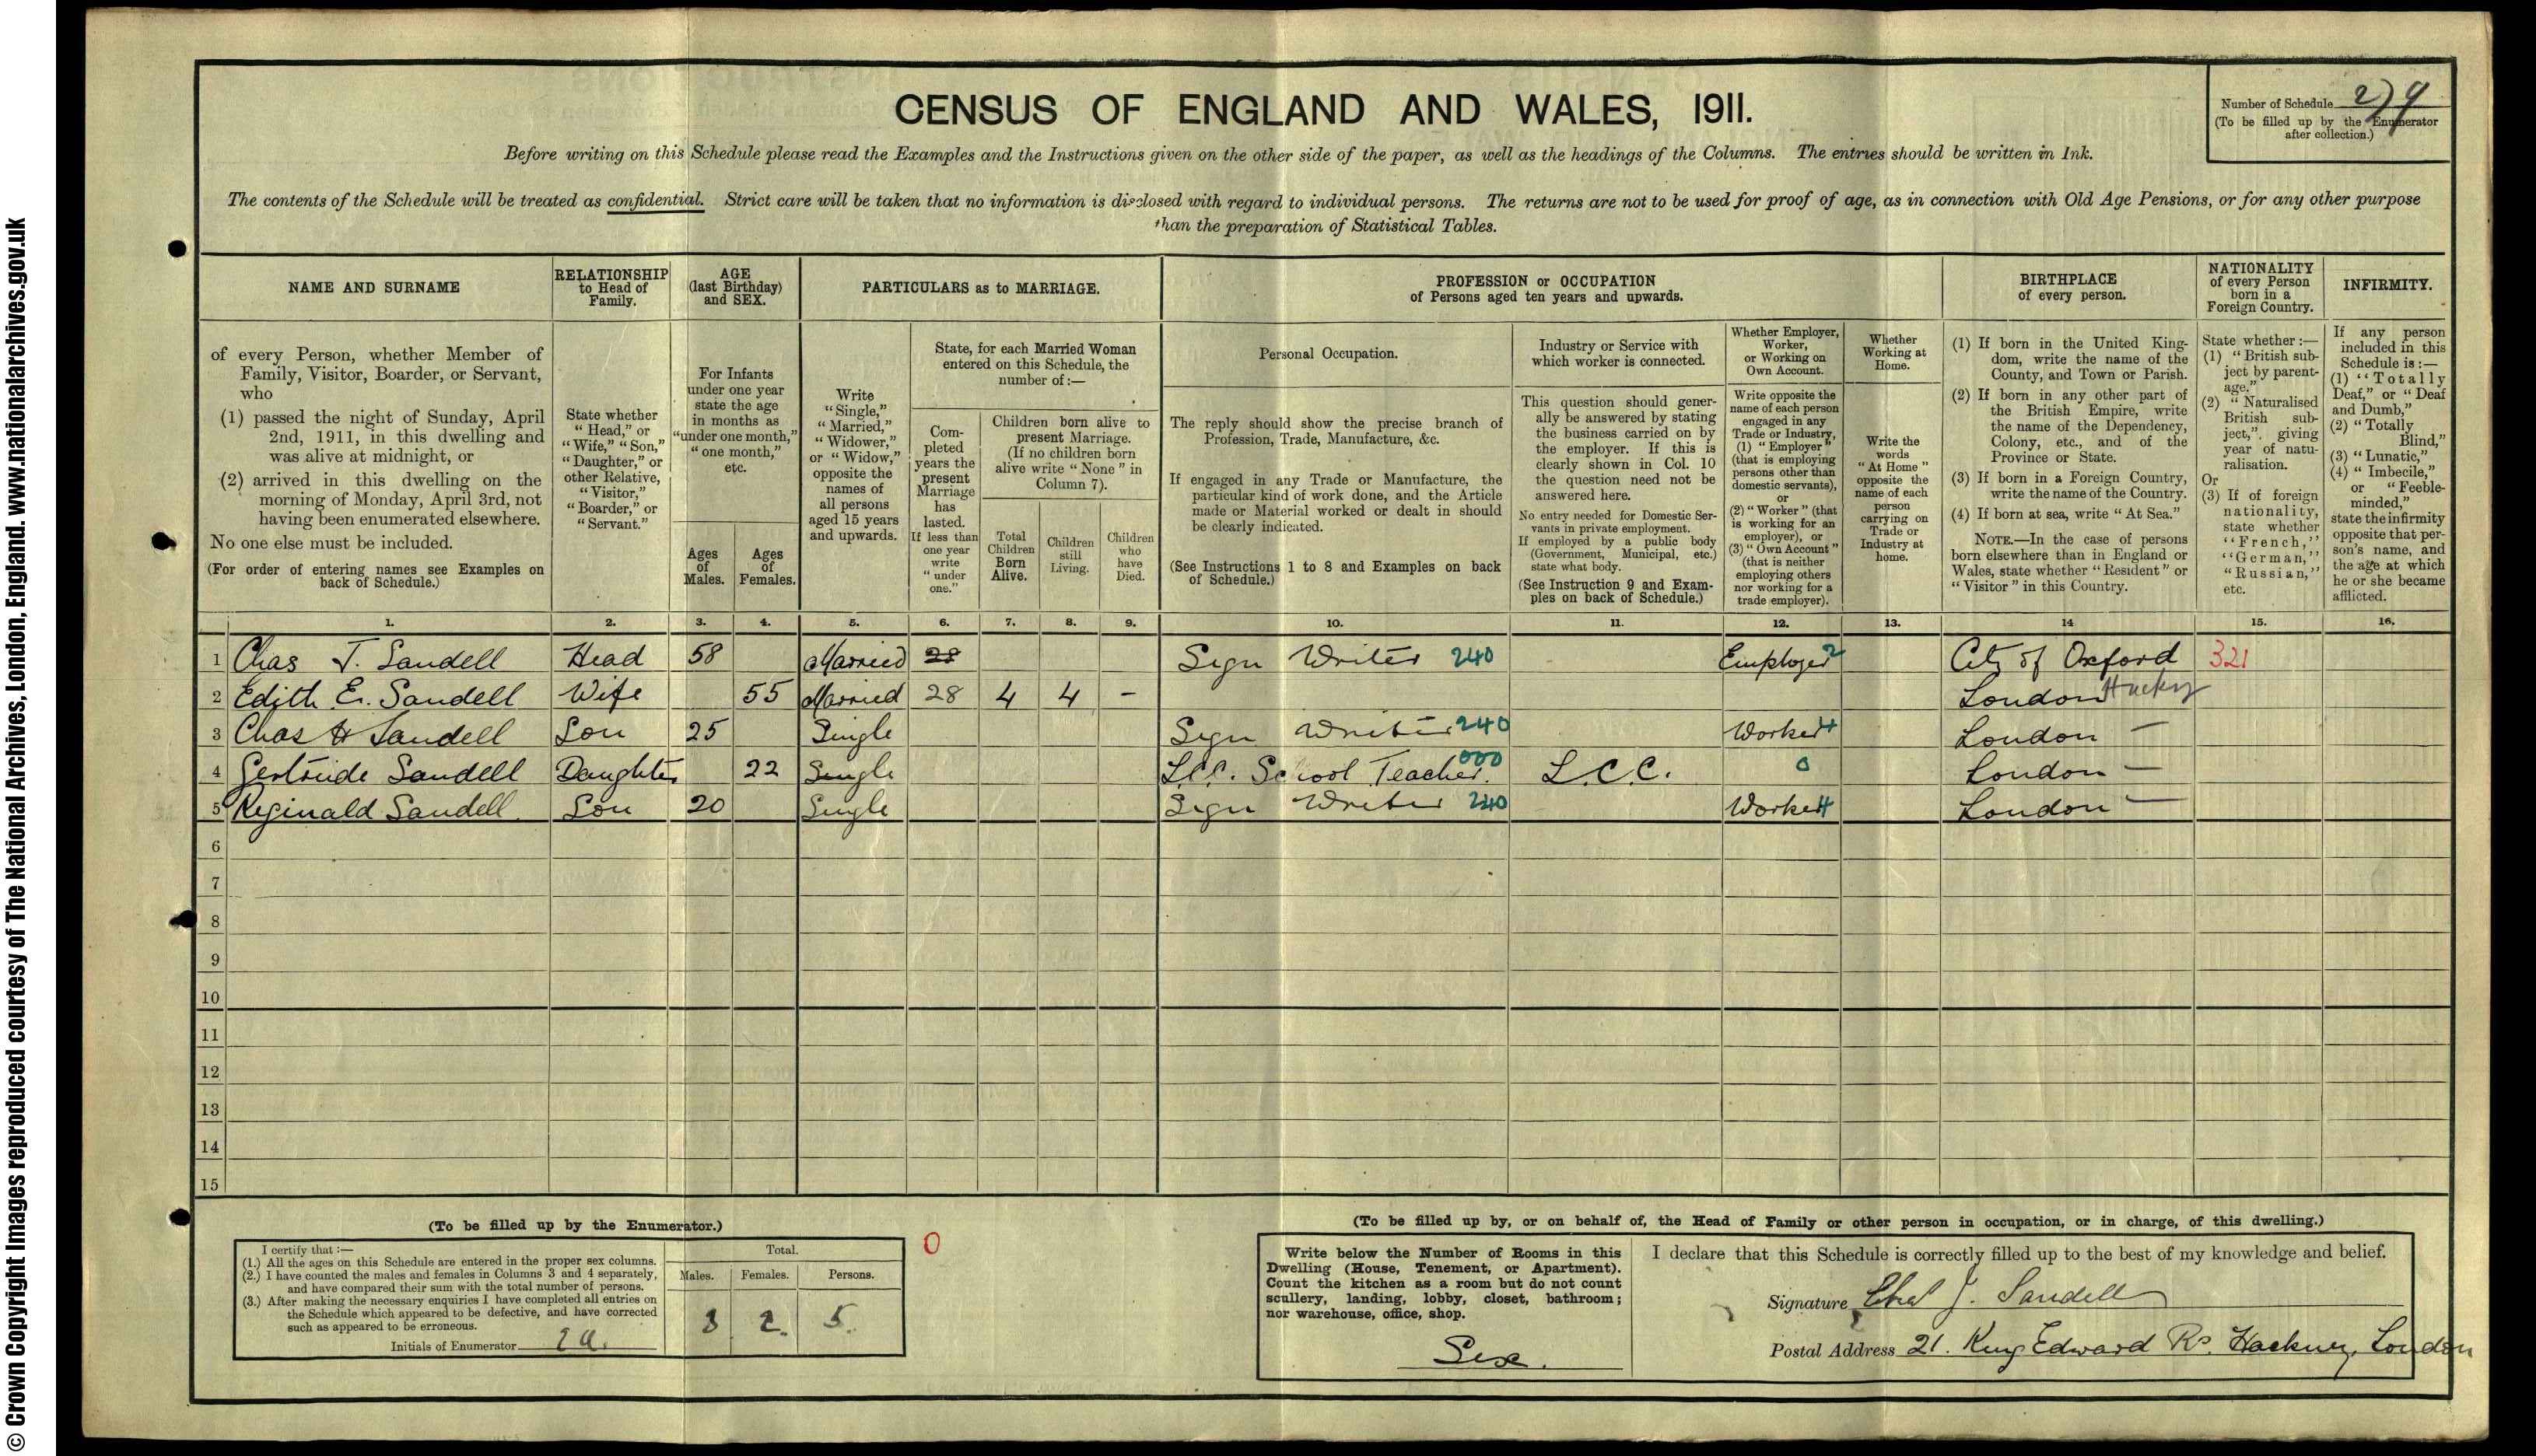 © Crown Copyright Images reproduced courtesy of The National Archives, London, England. www.nationalarchives.gov.uk
CENSUS OF ENGLAND AND WALES, 1911.
Number of Schedule 279
(To be filled up by the Enumerator
after collection.)
Before writing on this Schedule please read the Examples and the Instructions given on the other side of the paper, as well as the headings of the Columns. The entries should be written in Ink.
The contents of the Schedule will be treated as confidential. Strict care will be taken that no information is disclosed with regard to individual persons. The returns are not to be used for proof of age, as in connection with Old Age Pensions, or for any other purpose
than the preparation of Statistical Tables.
NAME AND SURNAME
of every Person, whether Member of
Family, Visitor, Boarder, or Servant,
who
(1) passed the night of Sunday, April
2nd, 1911, in this dwelling and
was alive at midnight, or
(2) arrived in this dwelling on the
morning of Monday, April 3rd, not
having been enumerated elsewhere.
No one else must be included.
(For order of entering names see Examples on
back of Schedule.)
RELATIONSHIP
to Head of
Family.
State whether
"Head," or
"Wife," "Son,"
"Daughter," or
other Relative,
"Visitor,"
"Boarder," or
"Servant."
AGE
(last Birthday)
and SEX.
For Infants
under one year
state the age
in months as
"under one month,"
"one month,"
etc.
Ages
of
Males.
Ages
of
Females.
PARTICULARS as to MARRIAGE.
Write
"Single,"
"Married,"
"Widower,"
or "Widow,"
opposite the
names of
all persons
aged 15 years
and upwards.
State, for each Married Woman
entered on this Schedule, the
number of:—
Com-
pleted
years the
present
Marriage
has
lasted.
If less than
one year
write
"under
one."
Children born alive to
present Marriage.
(If no children born
alive write "None" in
Column 7).
Total
Children
Born
Alive.
Children
still
Living.
Children
who
have
Died.
PROFESSION or OCCUPATION
of Persons aged ten years and upwards.
Personal Occupation.
The reply should show the precise branch of
Profession, Trade, Manufacture, &c.
If engaged in any Trade or Manufacture, the
particular kind of work done, and the Article
made or Material worked or dealt in should
be clearly indicated.
(See Instructions 1 to 8 and Examples on back
of Schedule.)
Industry or Service with
which worker is connected.
This question should gener-
ally be answered by stating
the business carried on by
the employer. If this is
clearly shown in Col. 10
the question need not be
answered here.
No entry needed for Domestic Ser-
vants in private employment.
If employed by a public body
(Government, Municipal, etc.)
state what body.
(See Instruction 9 and Exam-
ples on back of Schedule.)
Whether Employer,
Worker,
or Working on
Own Account.
Write opposite the
name of each person
engaged in any
Trade or Industry,
(1) "Employer"
(that is employing
persons other than
domestic servants),
or
(2) "Worker" (that
is working for an
employer), or
(3) "Own Account"
(that is neither
employing others
nor working for a
trade employer).
Whether
Working at
Home.
Write the
words
"At Home"
opposite the
name of each
person
carrying on
Trade or
Industry at
home.
BIRTHPLACE
of every person.
(1) If born in the United King-
dom, write the name of the
County, and Town or Parish.
(2) If born in any other part of
the British Empire, write
the name of the Dependency,
Colony, etc., and of the
Province or State.
(3) If born in a Foreign Country,
write the name of the Country.
(4) If born at sea, write "At Sea."
NOTE.—In the case of persons
born elsewhere than in England or
Wales, state whether "Resident" or
"Visitor" in this Country.
NATIONALITY
of every Person
born in a
Foreign Country.
State whether:—
(1) "British sub-
ject by parent-
age."
(2) "Naturalised
British sub-
ject," giving
year of natu-
ralisation.
Or
(3) If of foreign
nationality,
state whether
"French,"
"German,"
"Russian,"
etc.
INFIRMITY.
If any person
included in this
Schedule is:—
(1) "Totally
Deaf," or "Deaf
and Dumb,"
(2) "Totally
Blind,"
(3) "Lunatic,"
(4) "Imbecile,"
or "Feeble-
minded,"
state the infirmity
opposite that per-
son's name, and
the age at which
he or she became
afflicted.
1. 2. 3. 4. 5. 6. 7. 8. 9. 10. 11. 12. 13. 14 15. 16.
1 Chas J. Sandell Head 58 Married 28 Sign Writer 240 Employer 2 City of Oxford 321
2 Edith E. Sandell Wife 55 Married 28 4 4 – London
3 Chas H Sandell Son 25 Single Sign Writer 240 Worker 4 London —
4 Gertrude Sandell Daughter 22 Single L.C.C. School Teacher. 000 L.C.C. 0 London —
5 Reginald Sandell. Son 20 Single Sign Writer 240 Worker 4 London —
6
7
8
9
10
11
12
13
14
15
(To be filled up by the Enumerator.)
I certify that:—
(1.) All the ages on this Schedule are entered in the proper sex columns.
(2.) I have counted the males and females in Columns 3 and 4 separately,
and have compared their sum with the total number of persons.
(3.) After making the necessary enquiries I have completed all entries on
the Schedule which appeared to be defective, and have corrected
such as appeared to be erroneous.
Initials of Enumerator
Total.
Males. Females. Persons.
3 2. 5.
0
(To be filled up by, or on behalf of, the Head of Family or other person in occupation, or in charge, of this dwelling.)
Write below the Number of Rooms in this
Dwelling (House, Tenement, or Apartment).
Count the kitchen as a room but do not count
scullery, landing, lobby, closet, bathroom;
nor warehouse, office, shop.
Six.
I declare that this Schedule is correctly filled up to the best of my knowledge and belief.
Signature Chas J. Sandell
Postal Address 21. King Edward Rd. Hackney, London